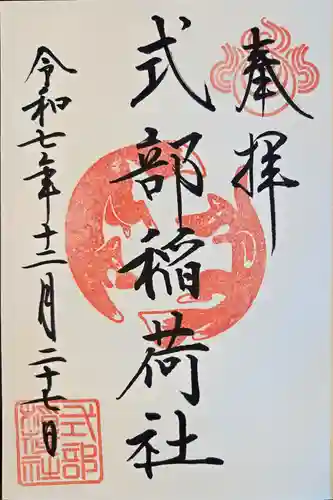 奉拝
式部稲荷社
令和七年十二月二十七日
式部稲荷社